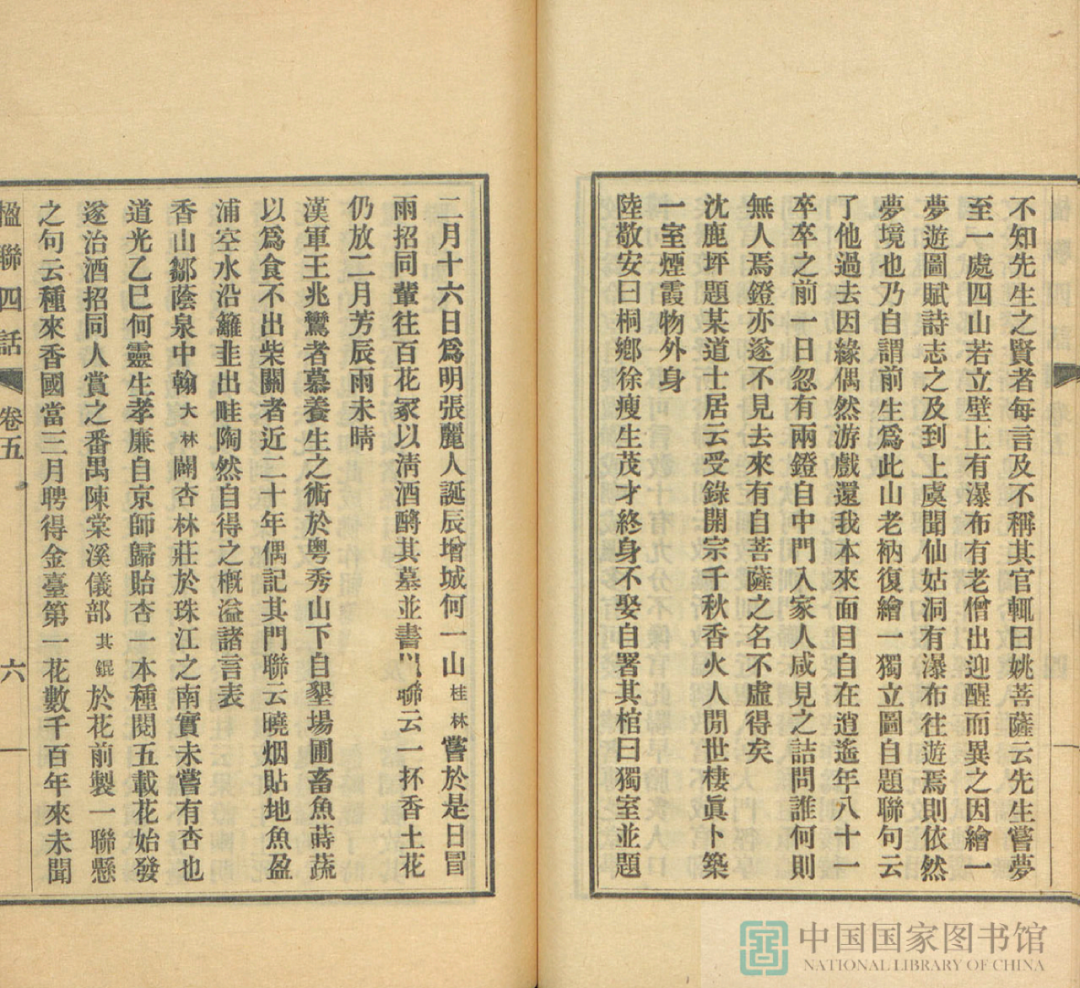 不知先生之賢者每言及不稱其官輒曰姚菩薩云先生嘗夢
至一處四山若立壁上有瀑布有老僧出迎醒而異之因繪一
夢遊圖賦詩志之及到上虞聞仙姑洞有瀑布往遊焉則依然
夢境也乃自謂前生爲此山老衲復繪一獨立圖自題聯句云
了他過去因緣偶然游戲還我本來面目自在逍遙年八十一
卒卒之前一日忽有兩鐙自中門入家人咸見之詰問誰何則
無人焉鐙亦遂不見去來有自菩薩之名不虛得矣
沈鹿坪題某道士居云受錄開宗千秋香火人閒世棲眞卜築
一室煙霞物外身
陸敬安曰桐鄉徐瘦生茂才終身不娶自署其棺曰獨室並題
二月十六日爲明張麗人誕辰增城何一山桂林嘗於是日冒
雨招同輩往百花冢以淸酒酹其墓並書聯云一抔香土花
仍放二月芳辰雨未晴
漢軍王兆鸞者慕養生之術於粤秀山下自墾場圃畜魚蒔蔬
以爲食不出柴關者近二十年偶記其門聯云曉烟貼地魚盈
浦空水沿籬韭出畦陶然自得之槪溢諸言表
香山鄒蔭泉中翰大林闢杏林莊於珠江之南實未嘗有杏也
道光乙巳何靈生孝廉自京師歸貽杏一本種閱五載花始發
遂治酒招同人賞之番禺陳棠溪儀部其錕於花前製一聯懸
之句云種來香國當三月聘得金臺第一花數千百年來未聞
楹聯四話
卷五
六
中国国家图书馆
NATIONAL LIBRARY OF CHINA